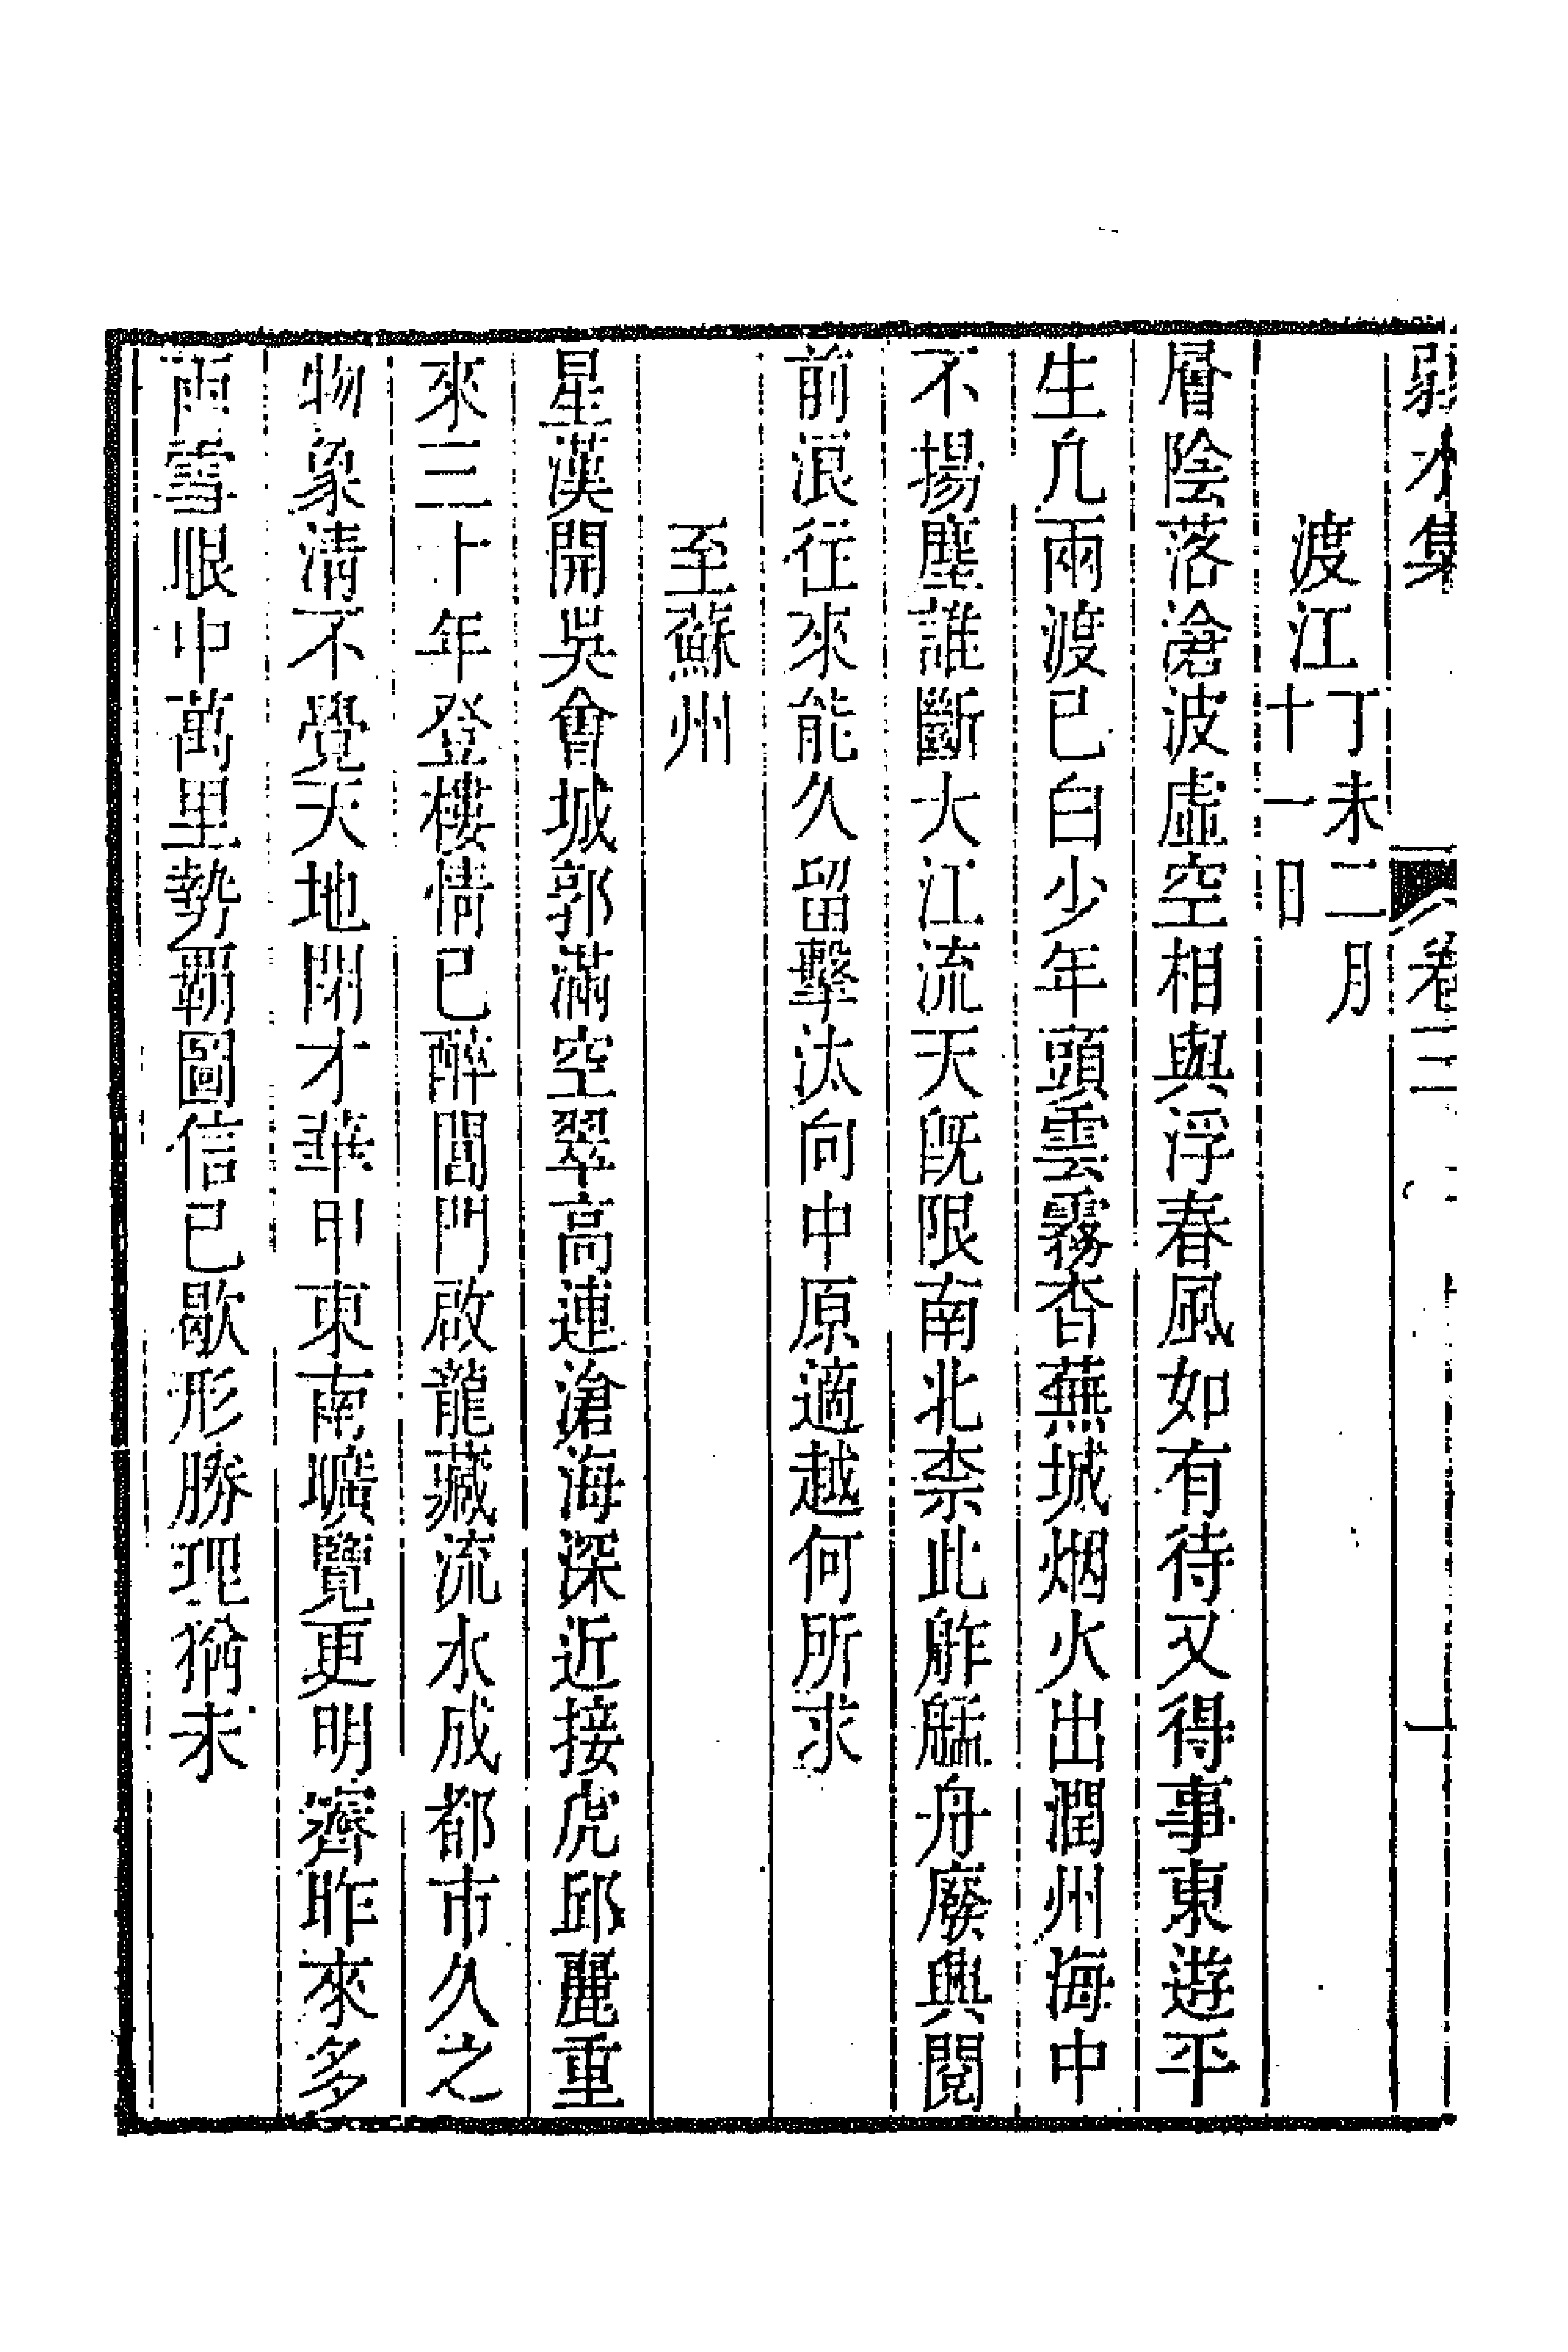 弱水集 卷三 一
渡江丁未二月十一日
層陰落滄波虛空相與浮春風如有待又得事東遊平
生凡兩渡已白少年頭雲霧杳蕪城烟火出潤州海中
不揚塵誰斷大江流天旣限南北柰此舴艋舟廢興閱
前浪往來能久留擊汰向中原適越何所求
至蘇州
星漢開吳會城郭滿空翠高連滄海深近接虎邱麗重
來三十年登樓情已醉閶門啟龍藏流水成都市久之
物象清不覺天地閉才華甲東南曠覽更明霽昨來多
雨雪眼中萬里勢覇圖信已歇形勝理猶未